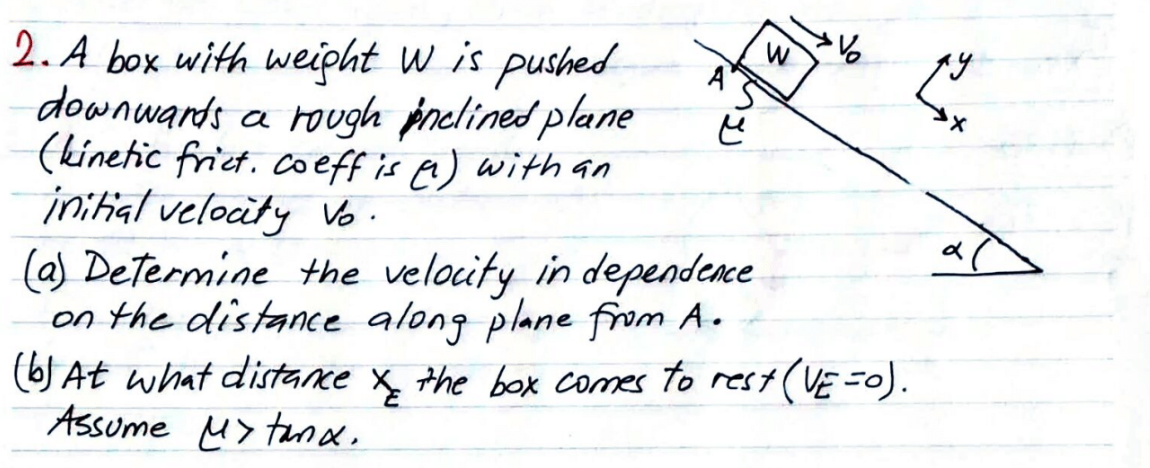 2. A box with weight W is pushed
downwards a rough inclined plane
(kinetic frict. coeff is μ) with an
initial velocity v₀.
(a) Determine the velocity in dependence
on the distance along plane from A.
(b) At what distance x_E the box comes to rest (V_E=0).
Assume μ > tanα.
W
V₀
A
μ
y
x
α